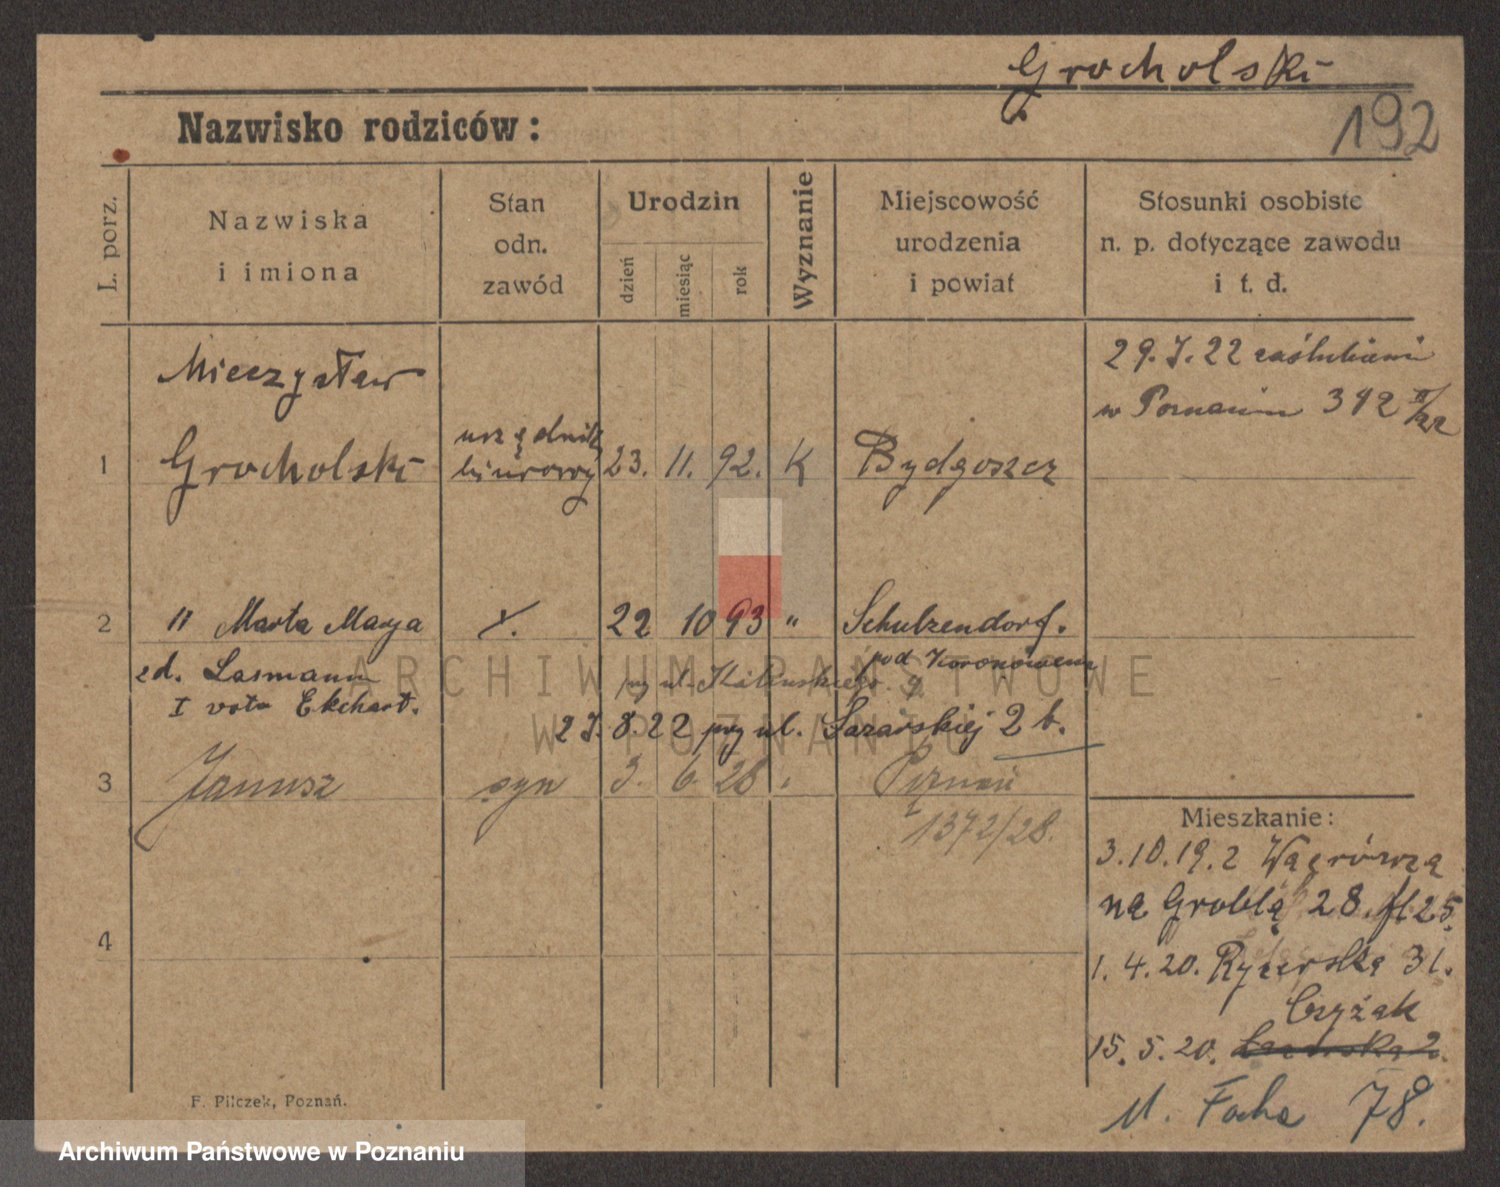 Grocholski
192
Nazwisko rodziców:
L. porz.
Nazwiska
i imiona
Stan
odn.
zawód
Urodzin
dzień
miesiąc
rok
Wyznanie
Miejscowość
urodzenia
i powiat
Stosunki osobiste
n. p. dotyczące zawodu
i t. d.
29.7.22 zaślubieni
w Poznaniu 392
Mieczysław
1 Grocholski urzędnik biurowy 23. 11. 92. K Bydgoszcz
2 " Marta Marya 22 10 93 " Schulzendorf.
pod Koronowem
zd. Lasmann
I voto Ekchart.
27.8.22 przy ul. Łazarskiej 2 b.
3 Janusz syn 3. 6. 28 Poznań
1372/28.
4
Mieszkanie:
3.10.19.
na Groblą 28.
1. 4. 20. Rycerska 31.
Czyżak
15. 5. 20.
M. Focha 78.
F. Pilczek, Poznań.
ARCHIWUM PAŃSTWOWE
W POZNANIU
Archiwum Państwowe w Poznaniu